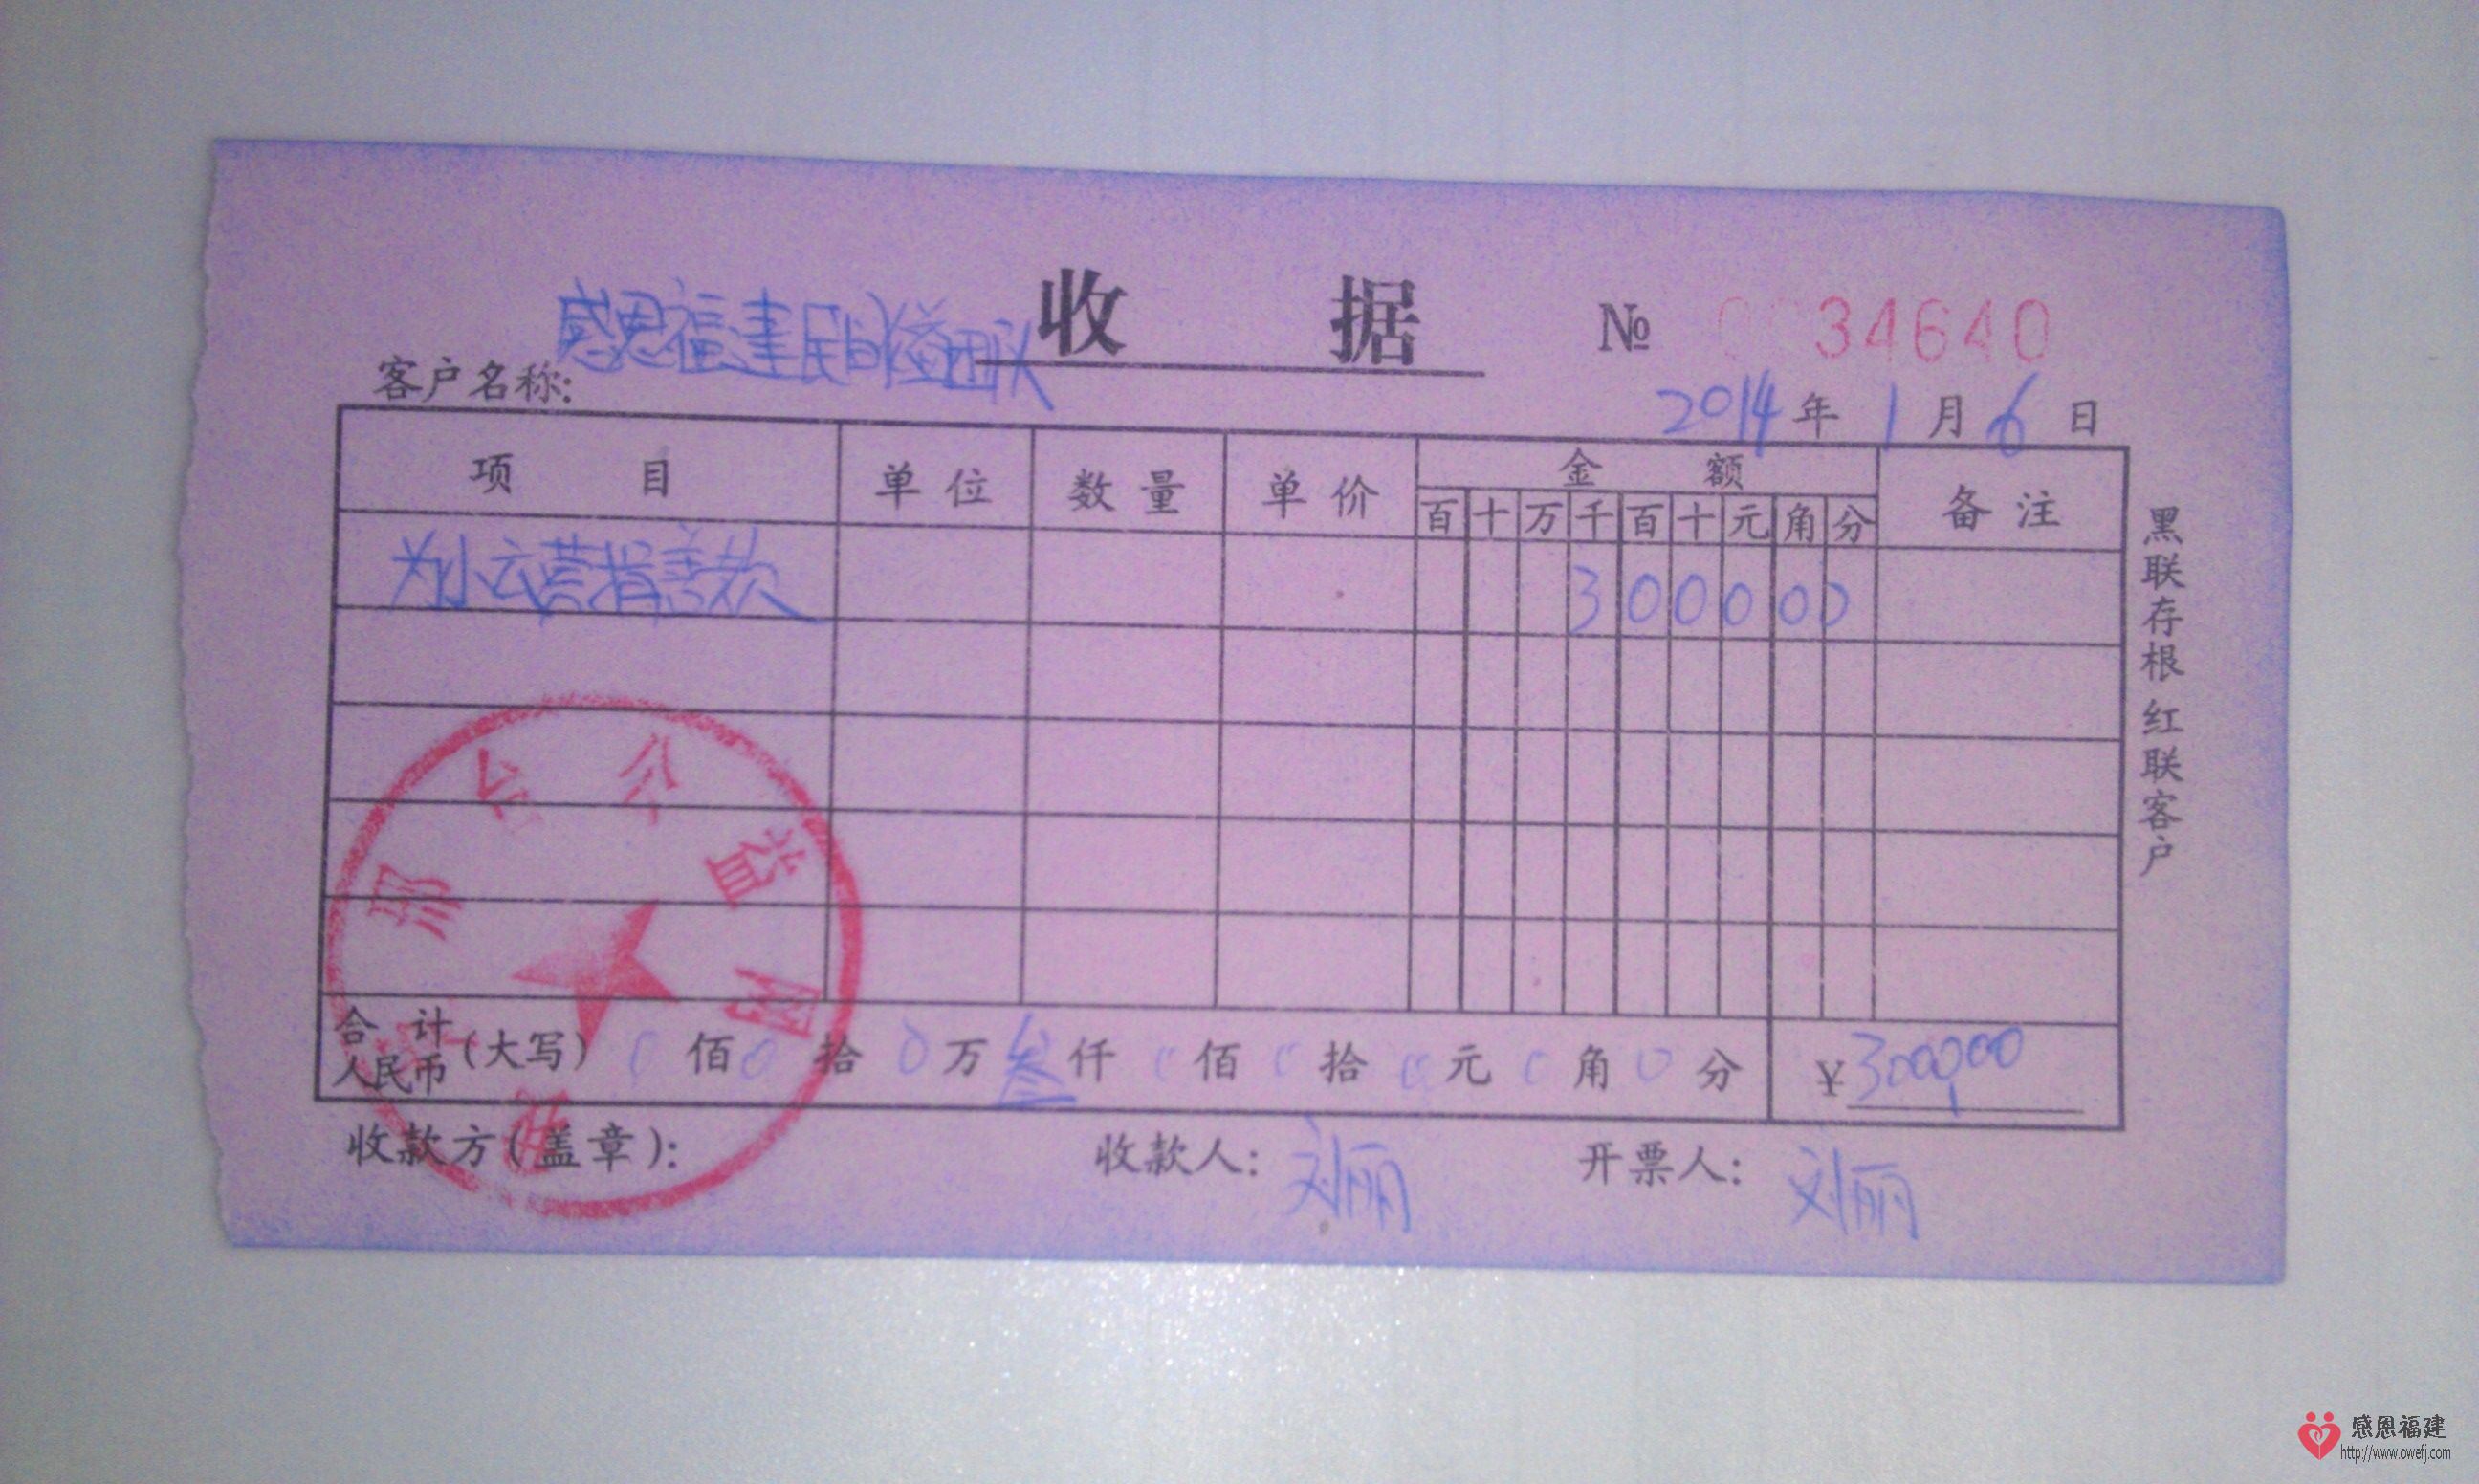 收 据
№ 0034640
客户名称: 感恩福建民间公益团队
2014 年 1 月 6 日
项 目 单位 数量 单价 金 额 备注
百 十 万 千 百 十 元 角 分
为小云营捐善款 3 0 0 0 0 0
合计人民币(大写) 0 佰 0 拾 0 万 叁 仟 0 佰 0 拾 0 元 0 角 0 分 ¥3000.00
收款方(盖章): 收款人: 刘丽 开票人: 刘丽
黑联存根 红联客户
公益网
感恩福建
http://www.owefj.com